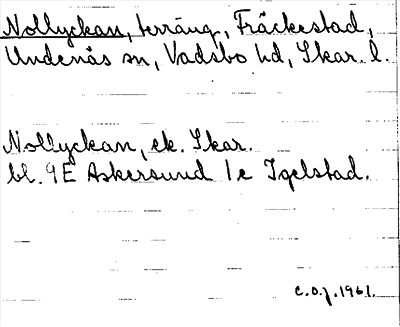 Nollyckan, terräng, Fräckestad,
Undenäs sn, Vadsbo hd, Skar. l.
Nollyckan, ek. Skar.
bl. 9E Askersund 1e Igelstad.
C.O.J. 1961.